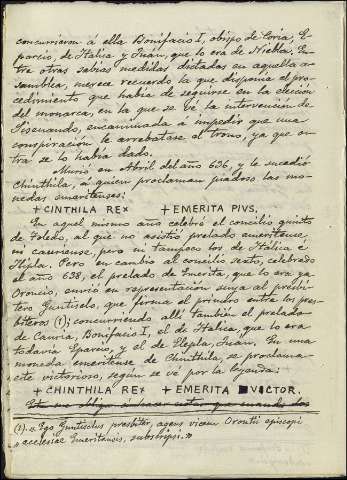 concurrieron á ella Bonifacio I, obispo de Coria, E-
parcio, de Itálica y Juan, que lo era de Niebla. En-
tre otras sabias medidas dictadas en aquella a-
samblea, merece recuerdo la que disponía el pro-
cedimiento que había de seguirse en la elección
del monarca, en la que se vé la intervención de
Sisenando, encaminada á impedir que una
conspiración le arrebatase el trono, ya que o-
tra se lo había dado.
Murió en Abril del año 636, y le sucedió
Chinthila, á quien proclaman piadoso las mo-
nedas emeritenses:
+CINTHILA REX +EMERITA PIVS,
En aquel mismo año celebró el concilio quinto
de Toledo, al que no asistió prelado emeritense
ni cauriense, pero ni tampoco los de Itálica é
Ilipla. Pero en cambio al concilio sexto, celebrado
el año 638, el prelado de Emerita, que lo era ya
Oroncio, envió en representación suya al presbí-
tero Guntisclo, que firma el primero entre los pres-
bíteros (1); concurriendo allí también el prelado
de Cauria, Bonifacio I, el de Italica, que lo era
todavía Eparcio, y el de Elepla, Juan. En una
moneda emeritense de Chinthila, se proclama
este victorioso, según se vé por la leyenda:
+CHINTHILA REX +EMERITA VICTOR.
Esto me obliga á hacer notar que cuando dos
(1). «Ego Guntisclus presbiter, agens vicem Orontii episcopi
"ecclesiae Emeritensis, subscripsi.»